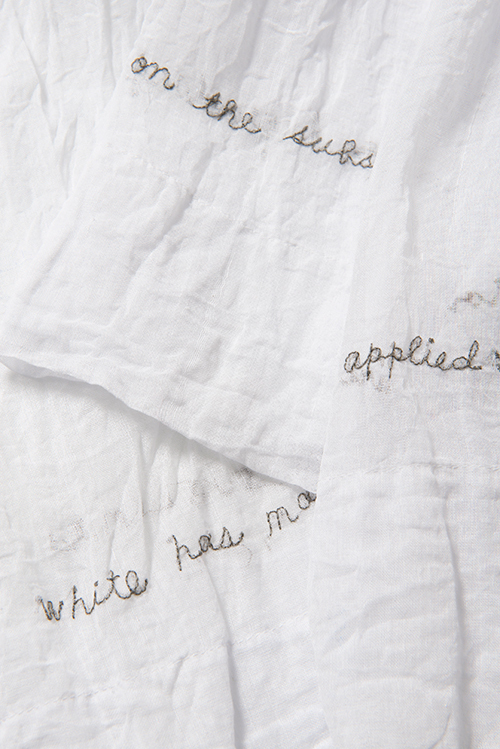 on the subs
applied
white has ma